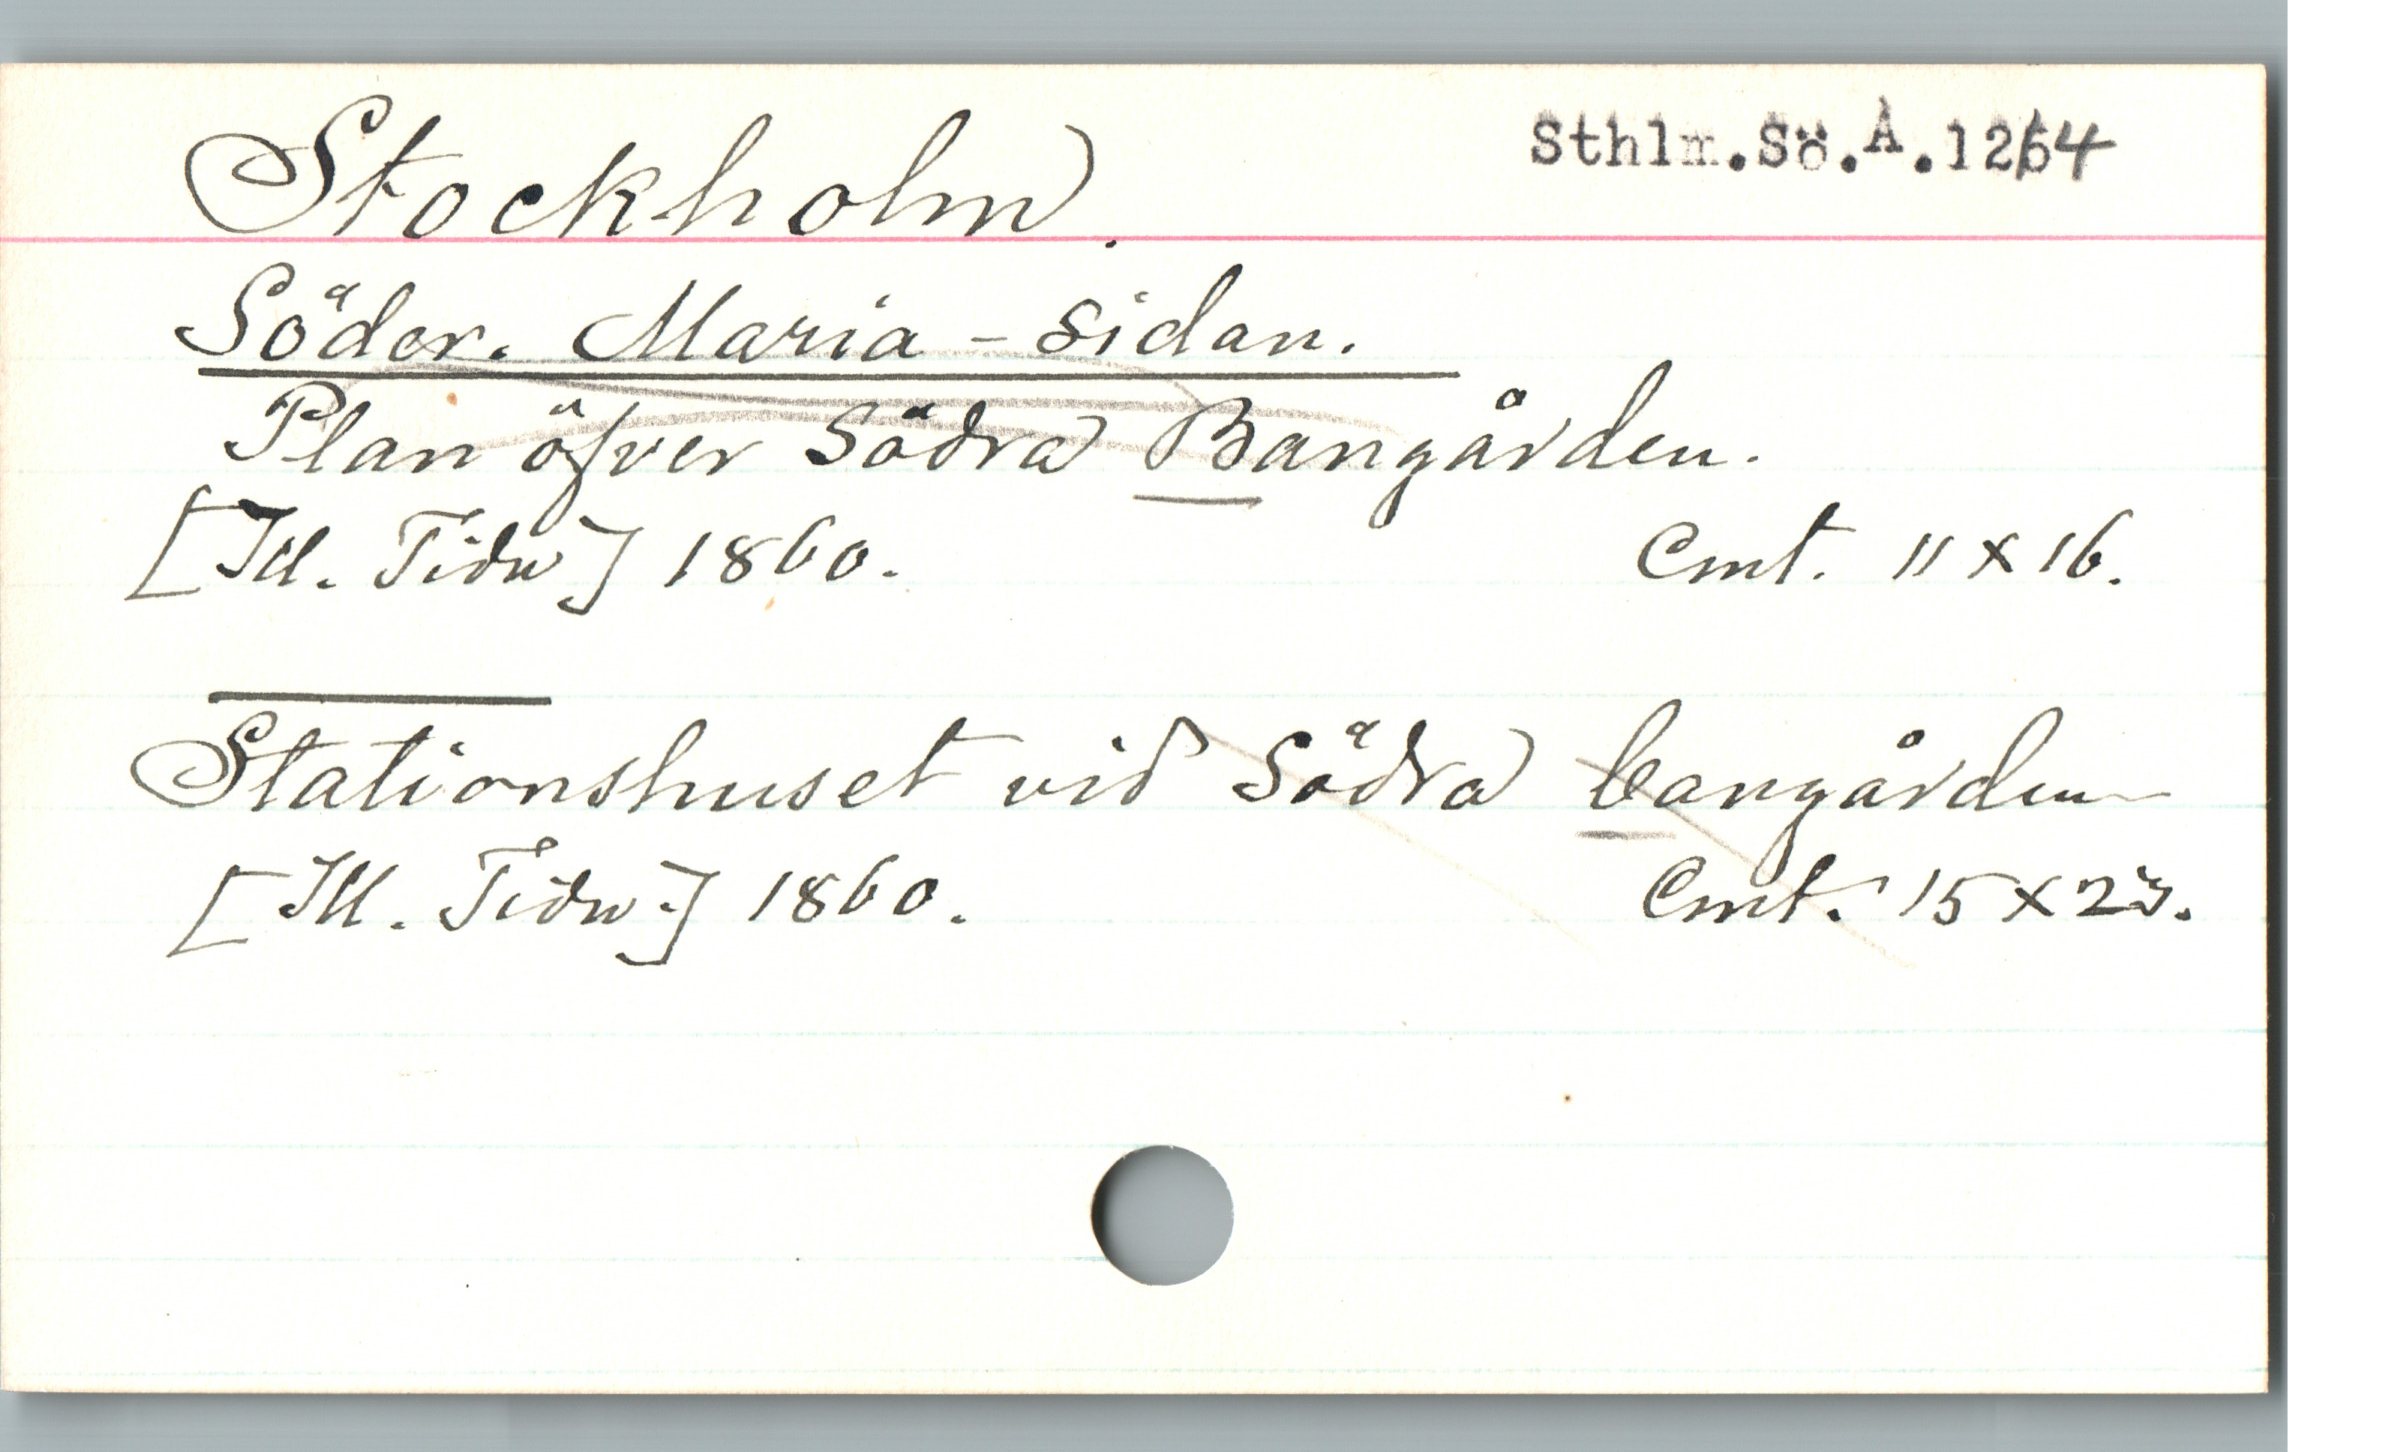 Stockholm.
Sthlm.Sö.A.124
Söder. Maria-sidan.
Plan öfver Södra Bangården.
[Ill. Tidn] 1860. Cmt. 11 x 16.
Stationshuset vid Södra bangården
[Ill. Tidn.] 1860. Cmt. 15 x 23.